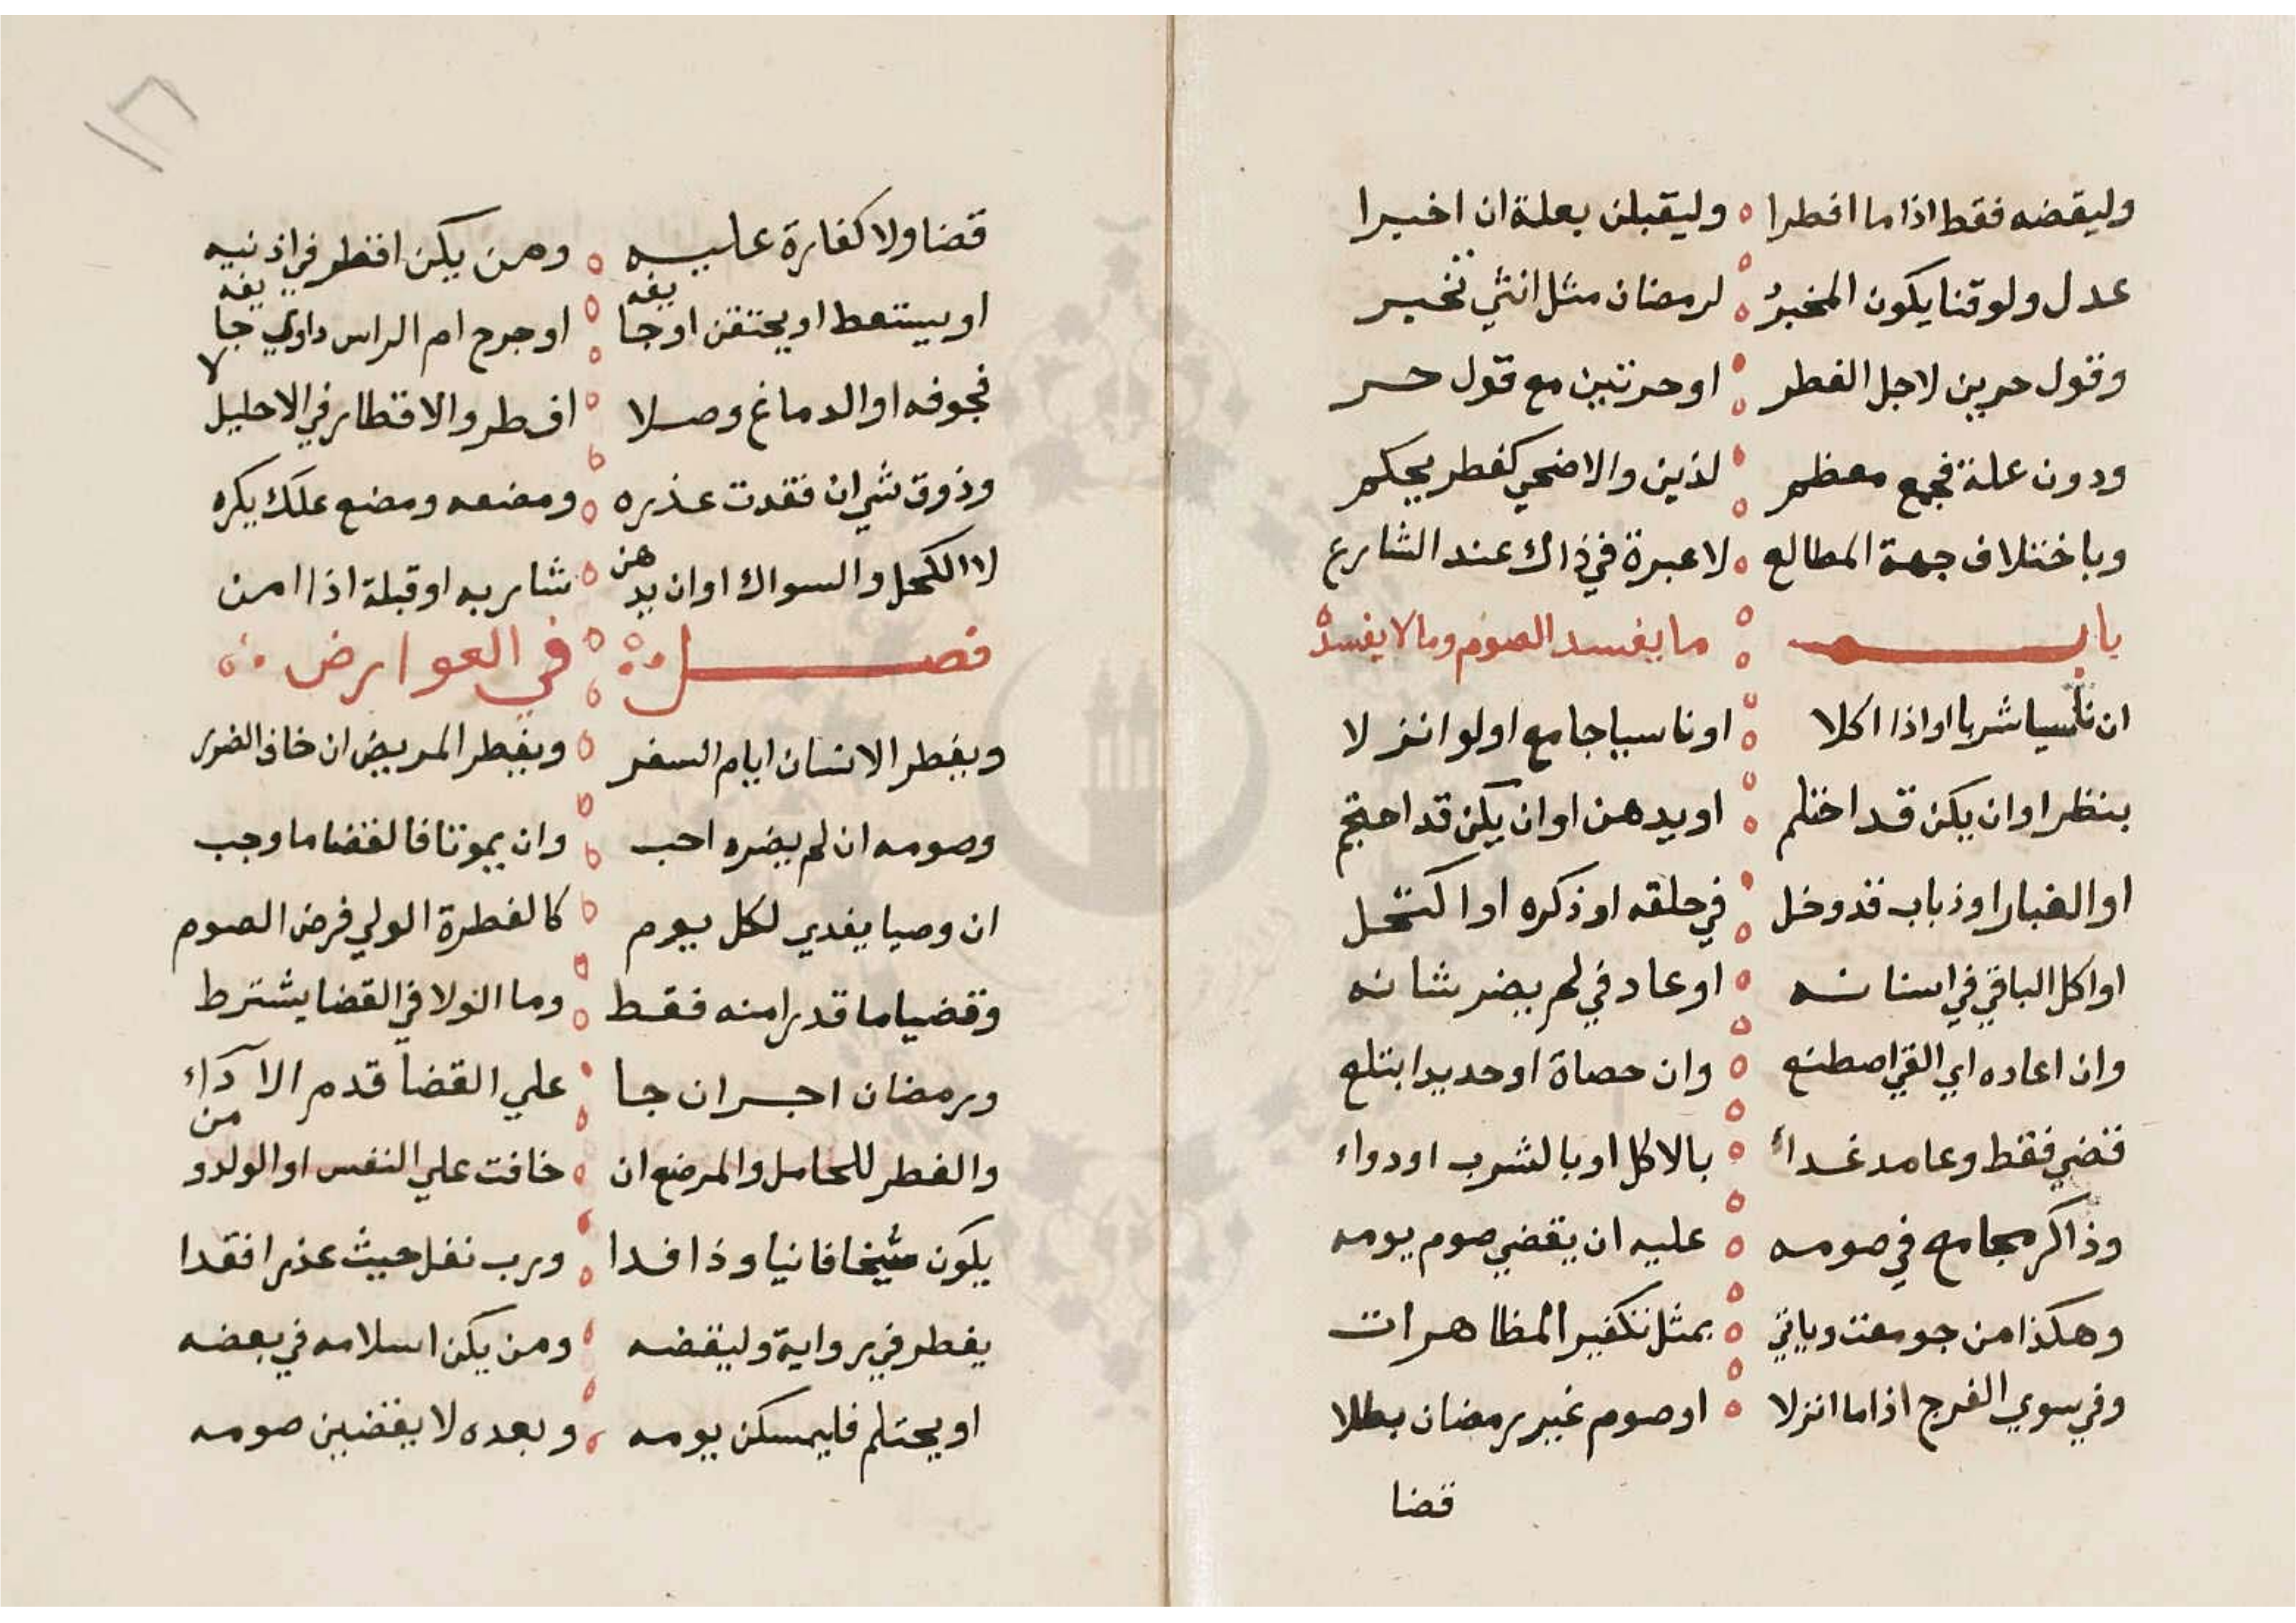 وليقضه فقط اذا ما افطرا ه وليقبلن بعلة ان اخبرا
عدل ولو قنا يكون المخبر ه لرمضان مثل انثي تخبر
وقول حرين لاجل الفطر ه او حرتين مع قول حر
ودون علة فجمع معظم ه لذين والاضحي كفطر يحكم
وباختلاف جهة المطالع ه لا عبرة في ذاك عند الشارع
باب ما يفسد الصوم وما لا يفسده
ان ناسيا شربا او اذا اكلا ه او ناسيا جامع او لو انزلا
بنظر او ان يكن قد احتلم ه او يدهن او ان يكن قد احتجم
او الغبار او ذباب قد دخل ه في حلقه او ذكره او اكتحل
او اكل الباقي في اسنانه ه او عاد في لم يضر شانه
وان اعاده اي القي اصطنع ه وان حصاة او حديدا ابتلع
قضي فقط وعامد غداء ه بالاكل او بالشرب او دواء
وذاكر مجامع في صومه ه عليه ان يقضي صوم يومه
وهكذا من جومعت وياتي ه بمثل تكفير المظاهرات
وفي سوي الفرج اذا ما انزلا ه او صوم غير رمضان بطلا
قضا
١٢
قضا ولا كفارة عليه ه ومن يكن اقطر في اذنيه
او يستعط او يحتقن او جايفه ه او جرح ام الراس داوي جايفه
فجوفه او الدماغ وصلا ه افطر والاقطار في الاحليل لا
وذوق شي ان فقدت عذره ه ومضغه ومضع علك يكره
لا الكحل والسواك او ان يدهن ه شاربه او قبلة اذا امن
فصل في العوارض
ويفطر الانسان ايام السفر ه ويفطر المريض ان خاف الضرر
وصومه ان لم يضره احب ه وان يموتا فالقضا ما وجب
ان وصيا يفدي لكل يوم ه كالفطرة الولي فرض الصوم
وقضيا ما قدرا منه فقط ه وما الولا في القضا يشترط
ورمضان اخر ان جا ه علي القضا قدم الاداء
والفطر للحامل والمرضع ان ه خافت علي النفس او الولد ومن
يكون شيخا فانيا وذا فدا ه ورب نفل حيث عذرا فقدا
يفطر في رواية وليقضه ه ومن يكن اسلامه في بعضه
او يحتلم فليمسكن يومه ه وبعده لا يقضين صومه